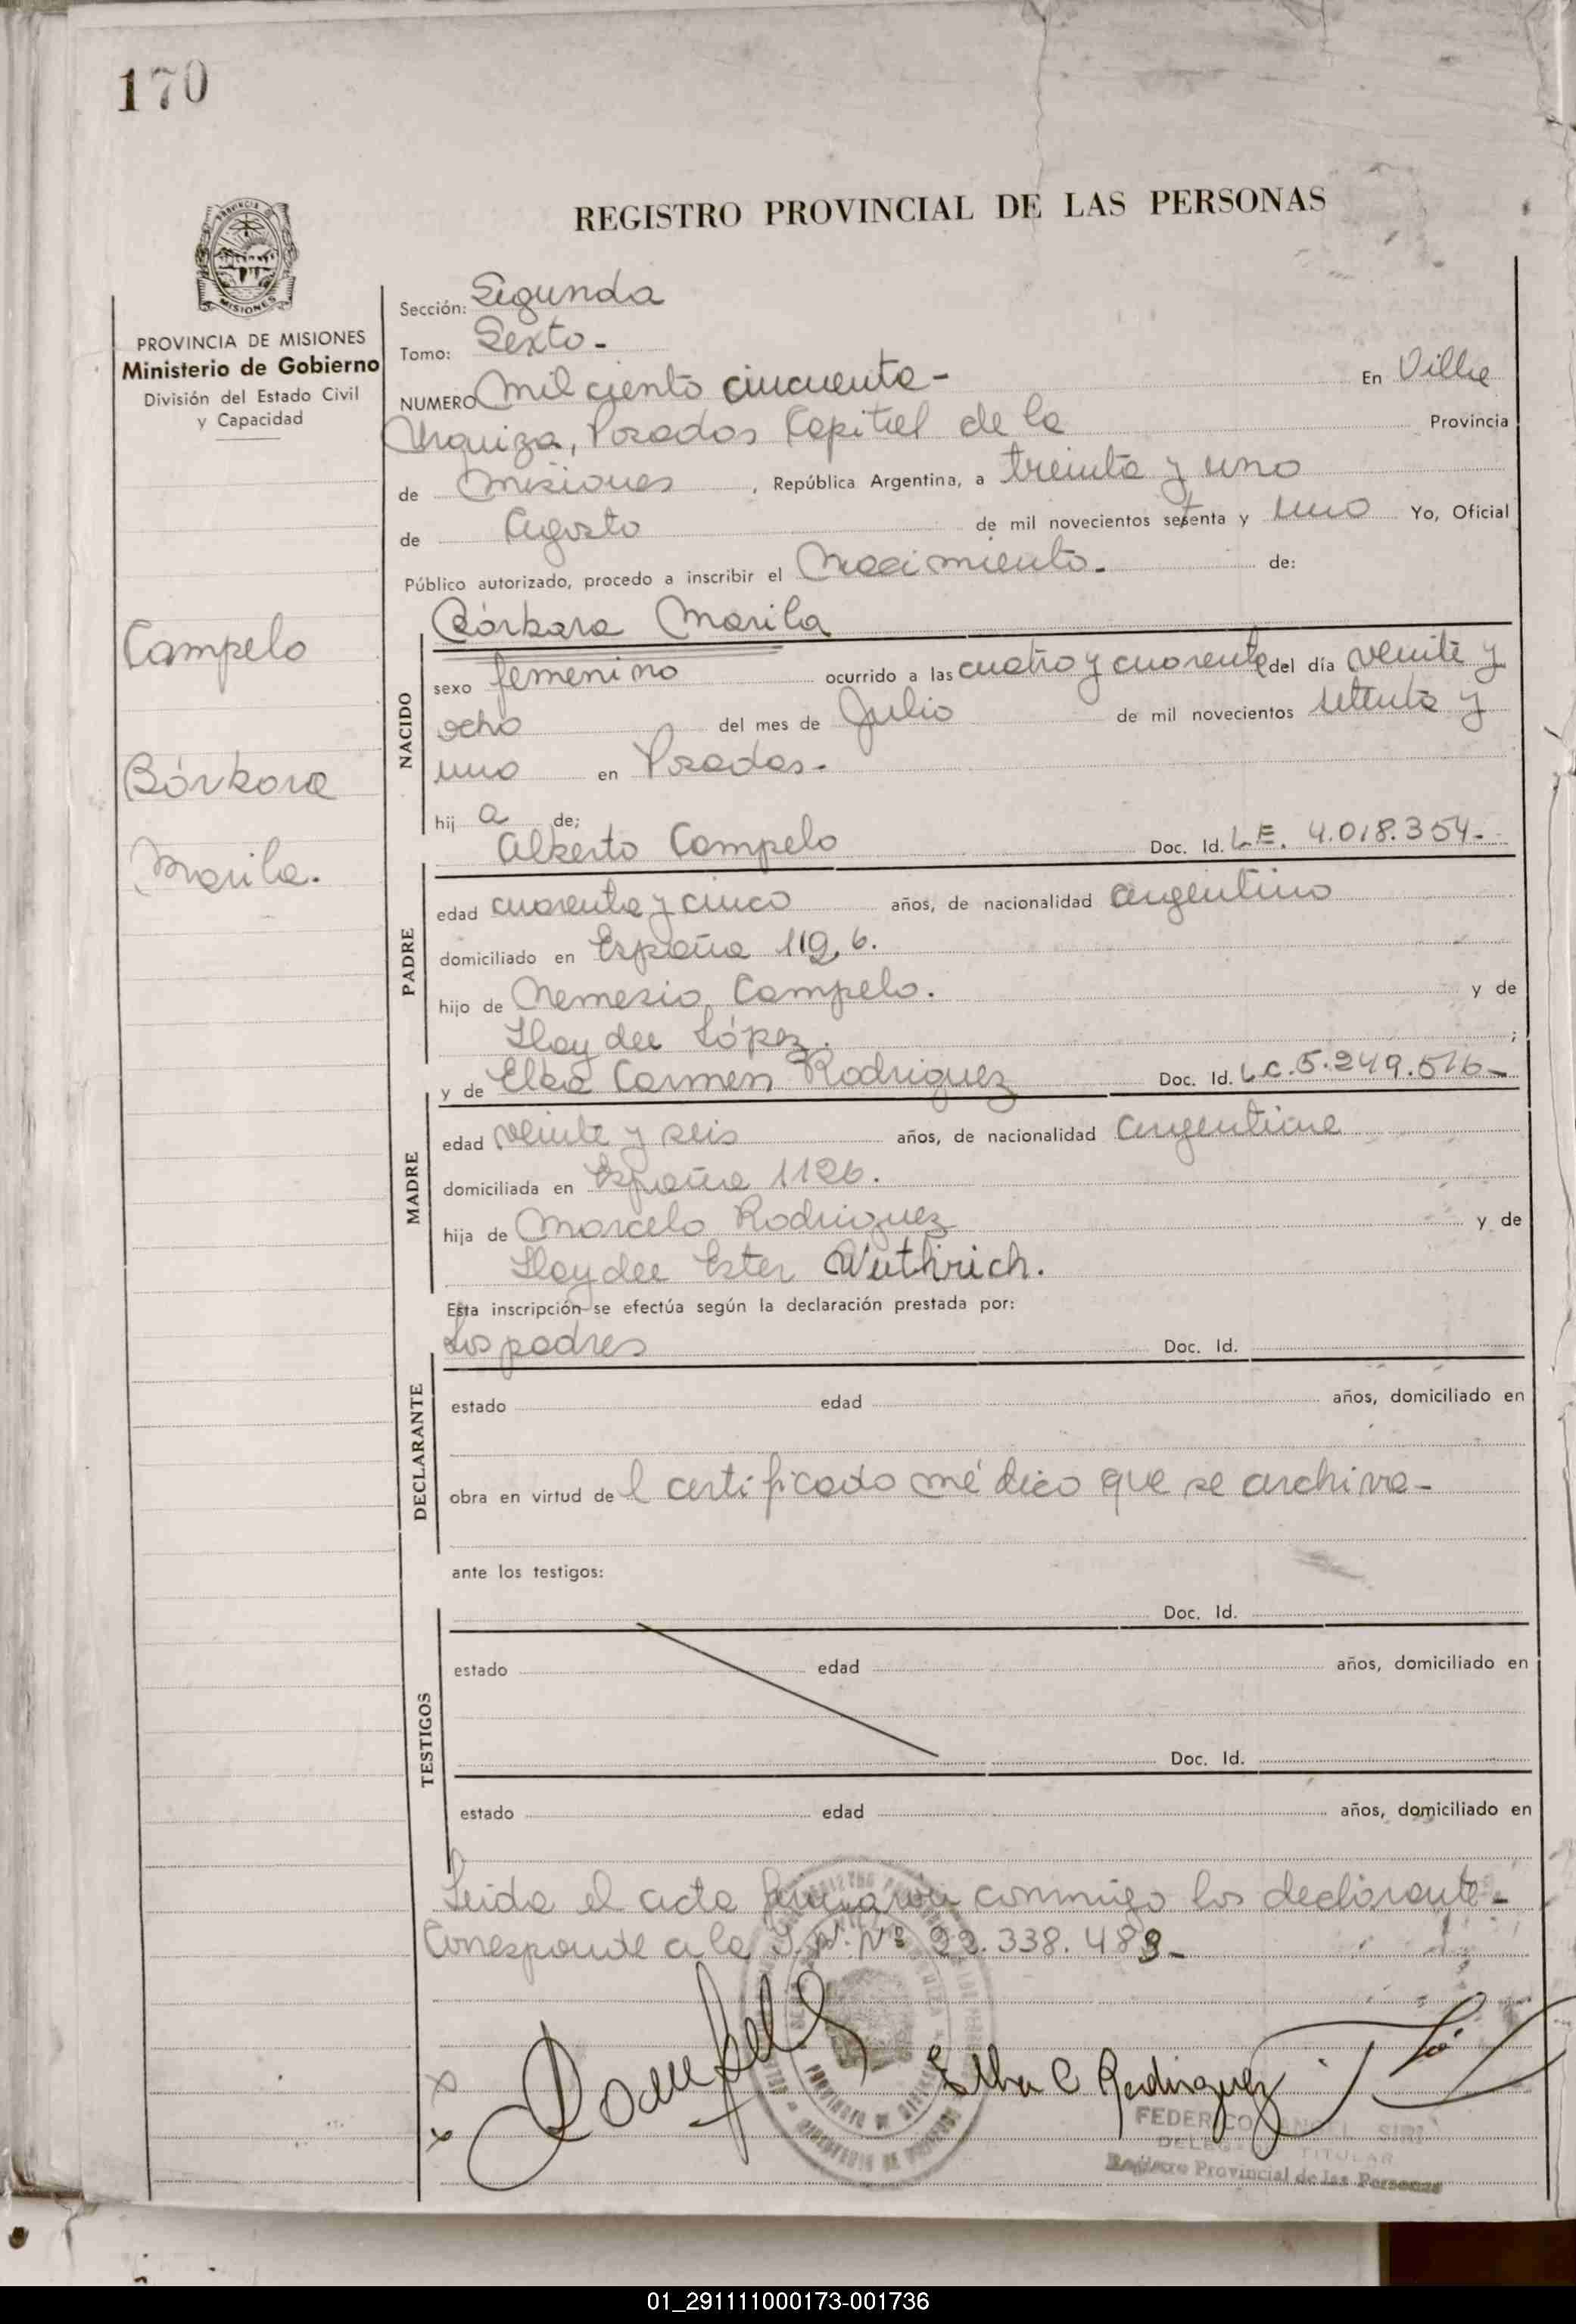 170
REGISTRO PROVINCIAL DE LAS PERSONAS
MISIONES
PROVINCIA DE MISIONES
Ministerio de Gobierno
División del Estado Civil
y Capacidad
Campelo
Bárbara
Marila.
Sección: Segunda
Tomo: Sexto-
NUMERO Mil ciento cincuenta- En Villa
Urquiza, Posadas Capital de la Provincia
de Misiones , República Argentina, a treinta y uno
de Agosto de mil novecientos setenta y uno Yo, Oficial
Público autorizado, procedo a inscribir el Nacimiento. de:
Bárbara Marila
NACIDO
sexo femenino ocurrido a las cuatro y cuarenta del día veinte y
ocho del mes de Julio de mil novecientos setenta y
uno en Posadas.
hij a de;
Alberto Campelo Doc. Id. L.E. 4.018.354-
PADRE
edad cuarenta y cinco años, de nacionalidad argentino
domiciliado en España 1126.
hijo de Nemesio Campelo. y de
Haydee López. ;
y de Elba Carmen Rodriguez Doc. Id. L.C.5.249.516-
MADRE
edad veinte y seis años, de nacionalidad argentina
domiciliada en España 1126.
hija de Marcelo Rodriguez y de
Haydee Ester Wuthrich.
Esta inscripción se efectúa según la declaración prestada por:
Los padres Doc. Id.
DECLARANTE
estado edad años, domiciliado en
obra en virtud del certificado médico que se archiva-
ante los testigos:
Doc. Id.
TESTIGOS
estado edad años, domiciliado en
Doc. Id.
estado edad años, domiciliado en
Leida el acta firmaron conmigo los declarante-
Corresponde a la I.N. Nº 22.338.483-
Elba C Rodriguez
FEDERICO ANGEL SIRI
DELEGADO TITULAR
Registro Provincial de las Personas
01_291111000173-001736